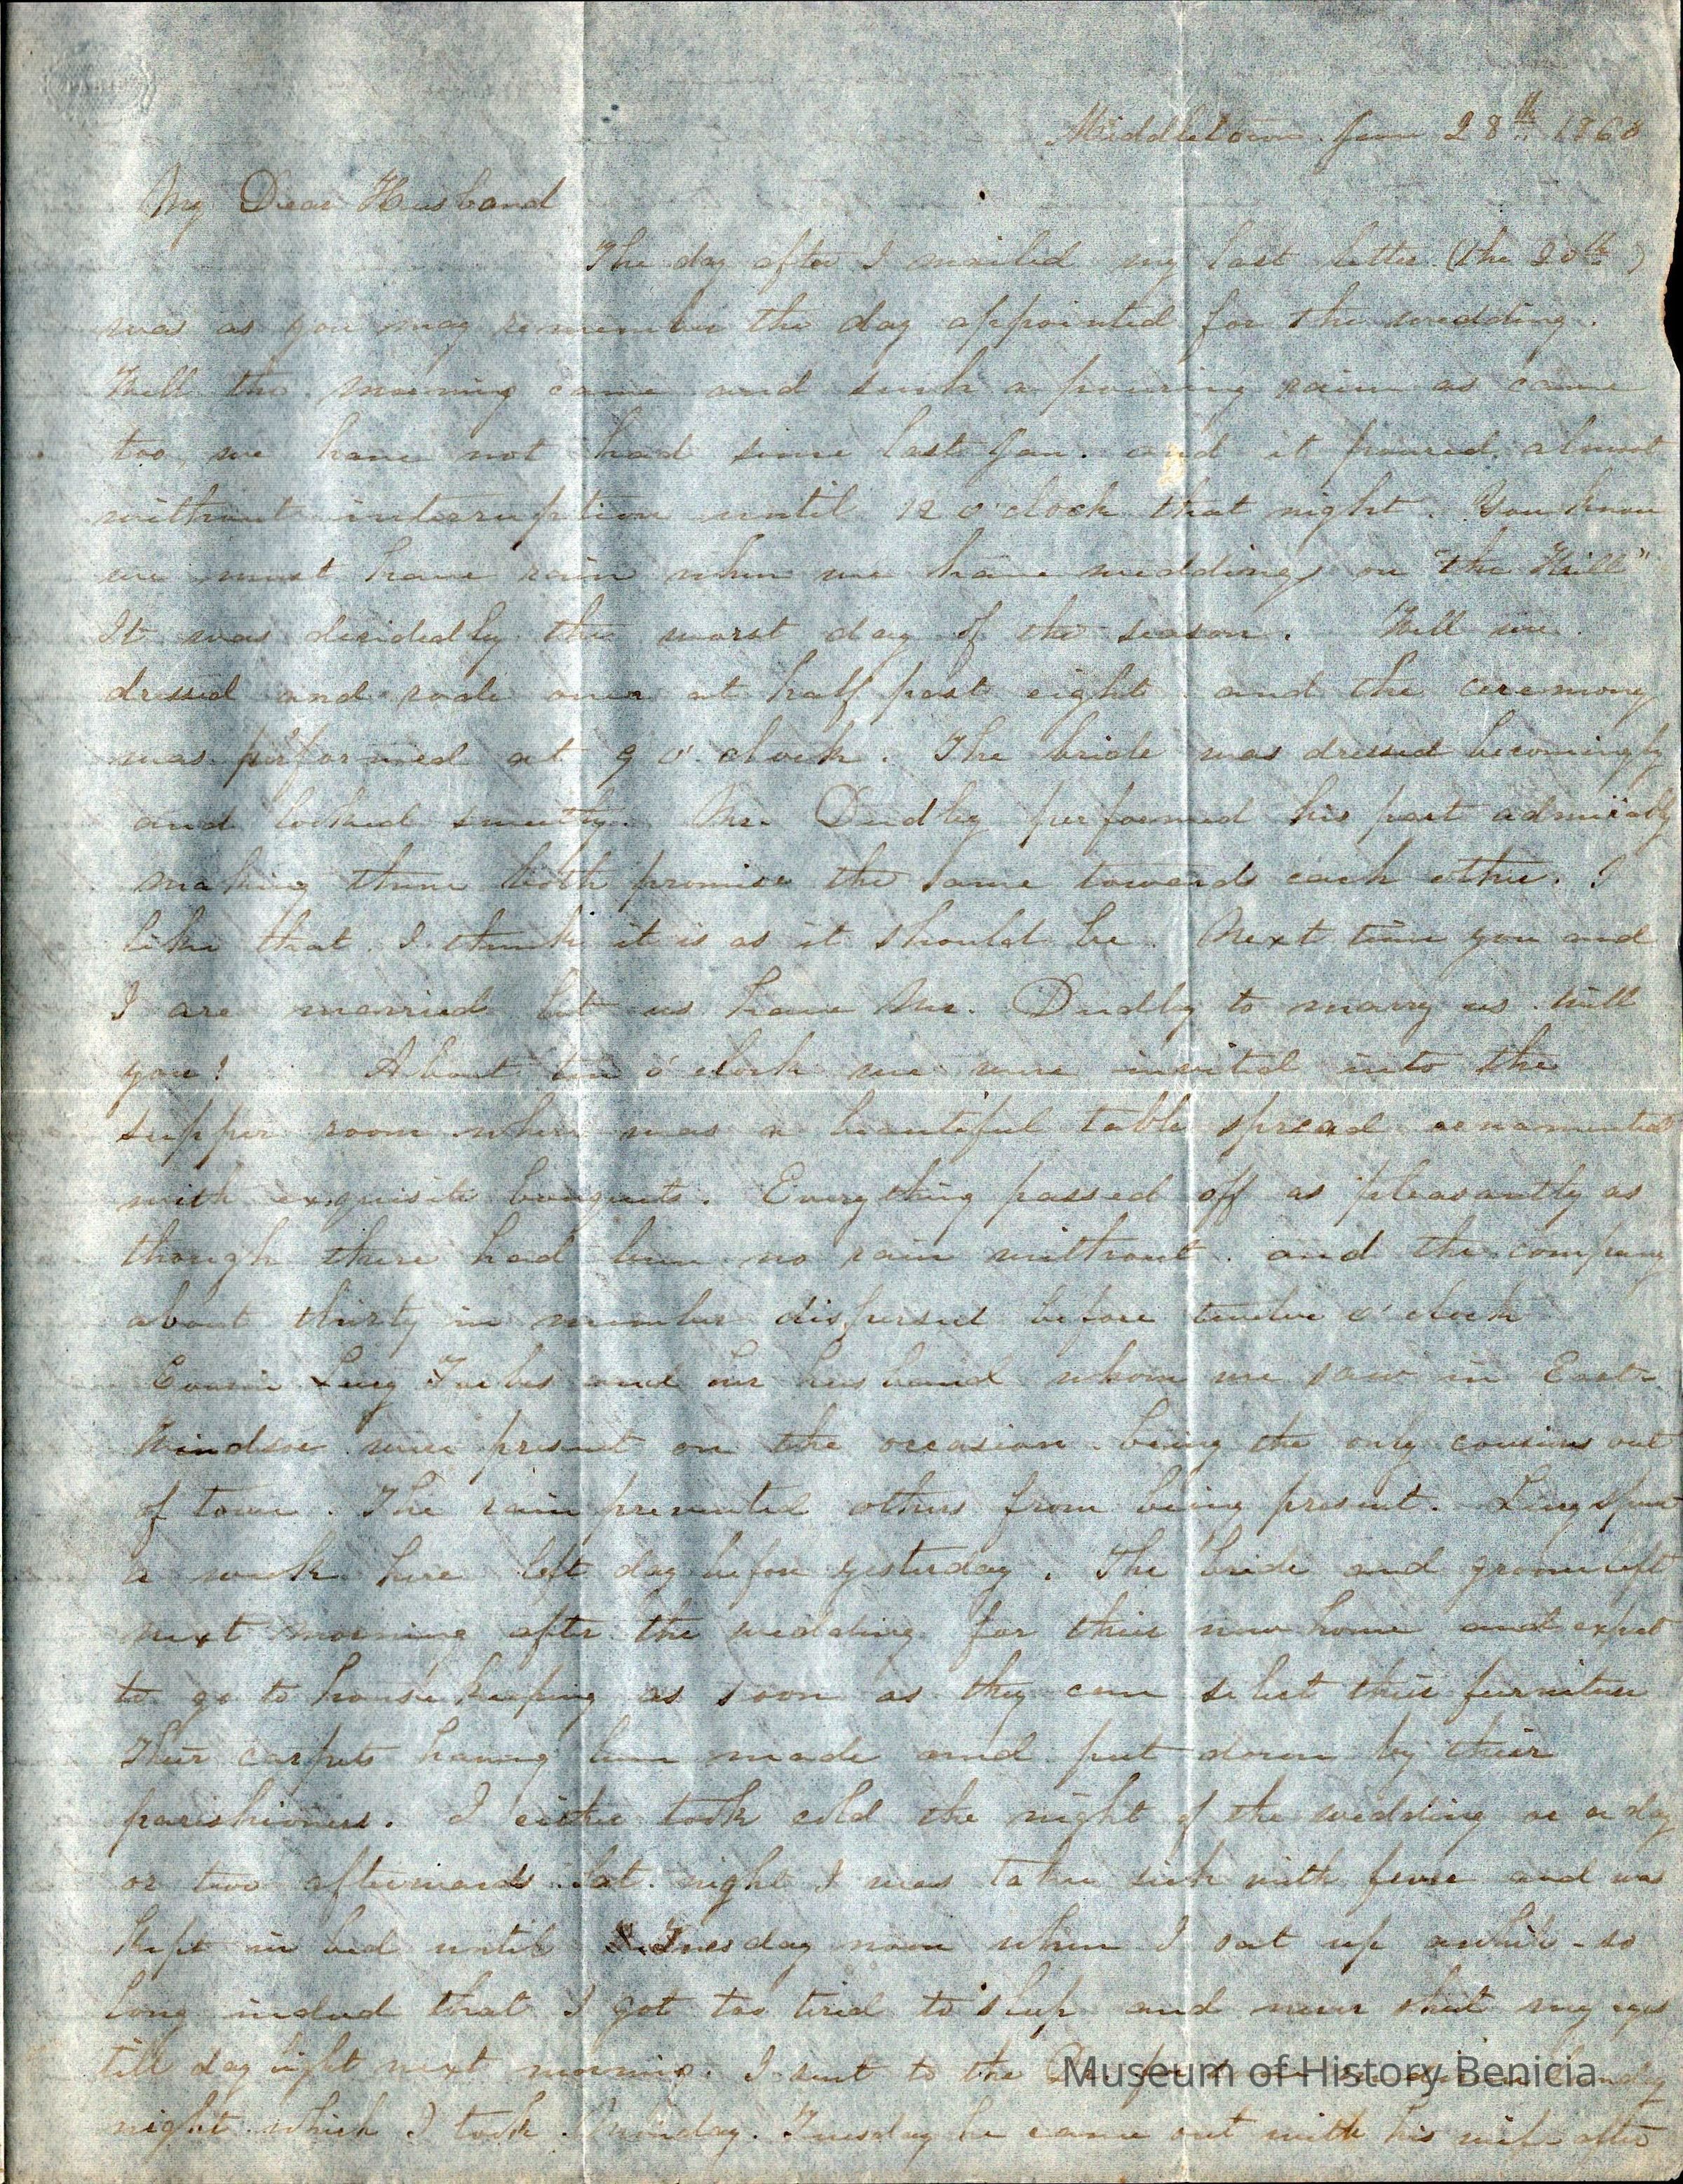 Middletown Jan 28th 1860
My Dear Husband
The day after I mailed my last letter (the 20th)
was as you may remember the day appointed for the wedding.
Well the morning came and such a pouring rain as came
too, we have not had since last Jan. and it poured almost
without interruption until 12 o'clock that night. You know
we must have rain when we have weddings on "the Hill"
It was decidedly the worst day of the season. Well we
dressed and rode over at half past eight and the ceremony
was performed at 9 o'clock. The bride was dressed becomingly
and looked sweetly. Mr. Dudley performed his part admirably
making them both promise the same towards each other. I
like that. I think it is as it should be. Next time you and
I are married let us have Mr. Dudley to marry us will
you? About ten o'clock we were invited into the
supper room where was a beautiful table spread ornamented
with exquisite bouquets. Everything passed off as pleasantly as
though there had been no rain without. and the company
about thirty in number dispersed before twelve o'clock
Cousin Lucy and her husband whom we saw in East
Windsor were present on the occasion being the only cousins out
of town. The rain prevented others from being present. Lucy spent
a week here left day before yesterday. The bride and groom left
next morning after the wedding for their new home and expect
to go to house keeping as soon as they can select their furniture
Their carpets having been made and put down by their
parishioners. I either took cold the night of the wedding or a day
or two afterwards Sat. night I was taken sick with fever and was
kept in bed until Tuesday noon when I sat up awhile - so
long indeed that I got too tired to sleep and never shut my eyes
till day light next morning. I sent to the Dr. for
night which I took Monday. Tuesday he came out with his wife after
Museum of History Benicia